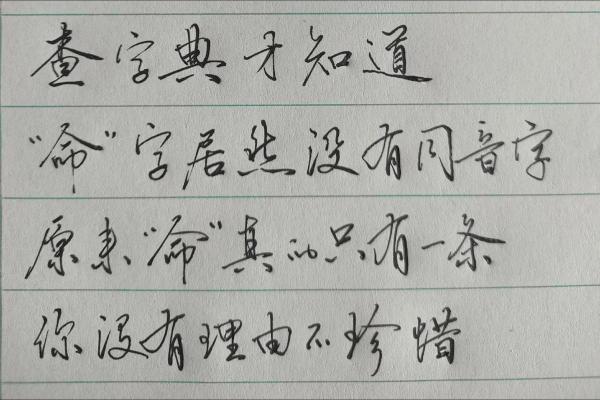 查字典才知道
“命”字居然没有同音字
原来“命”真的只有一条
你没有理由不珍惜